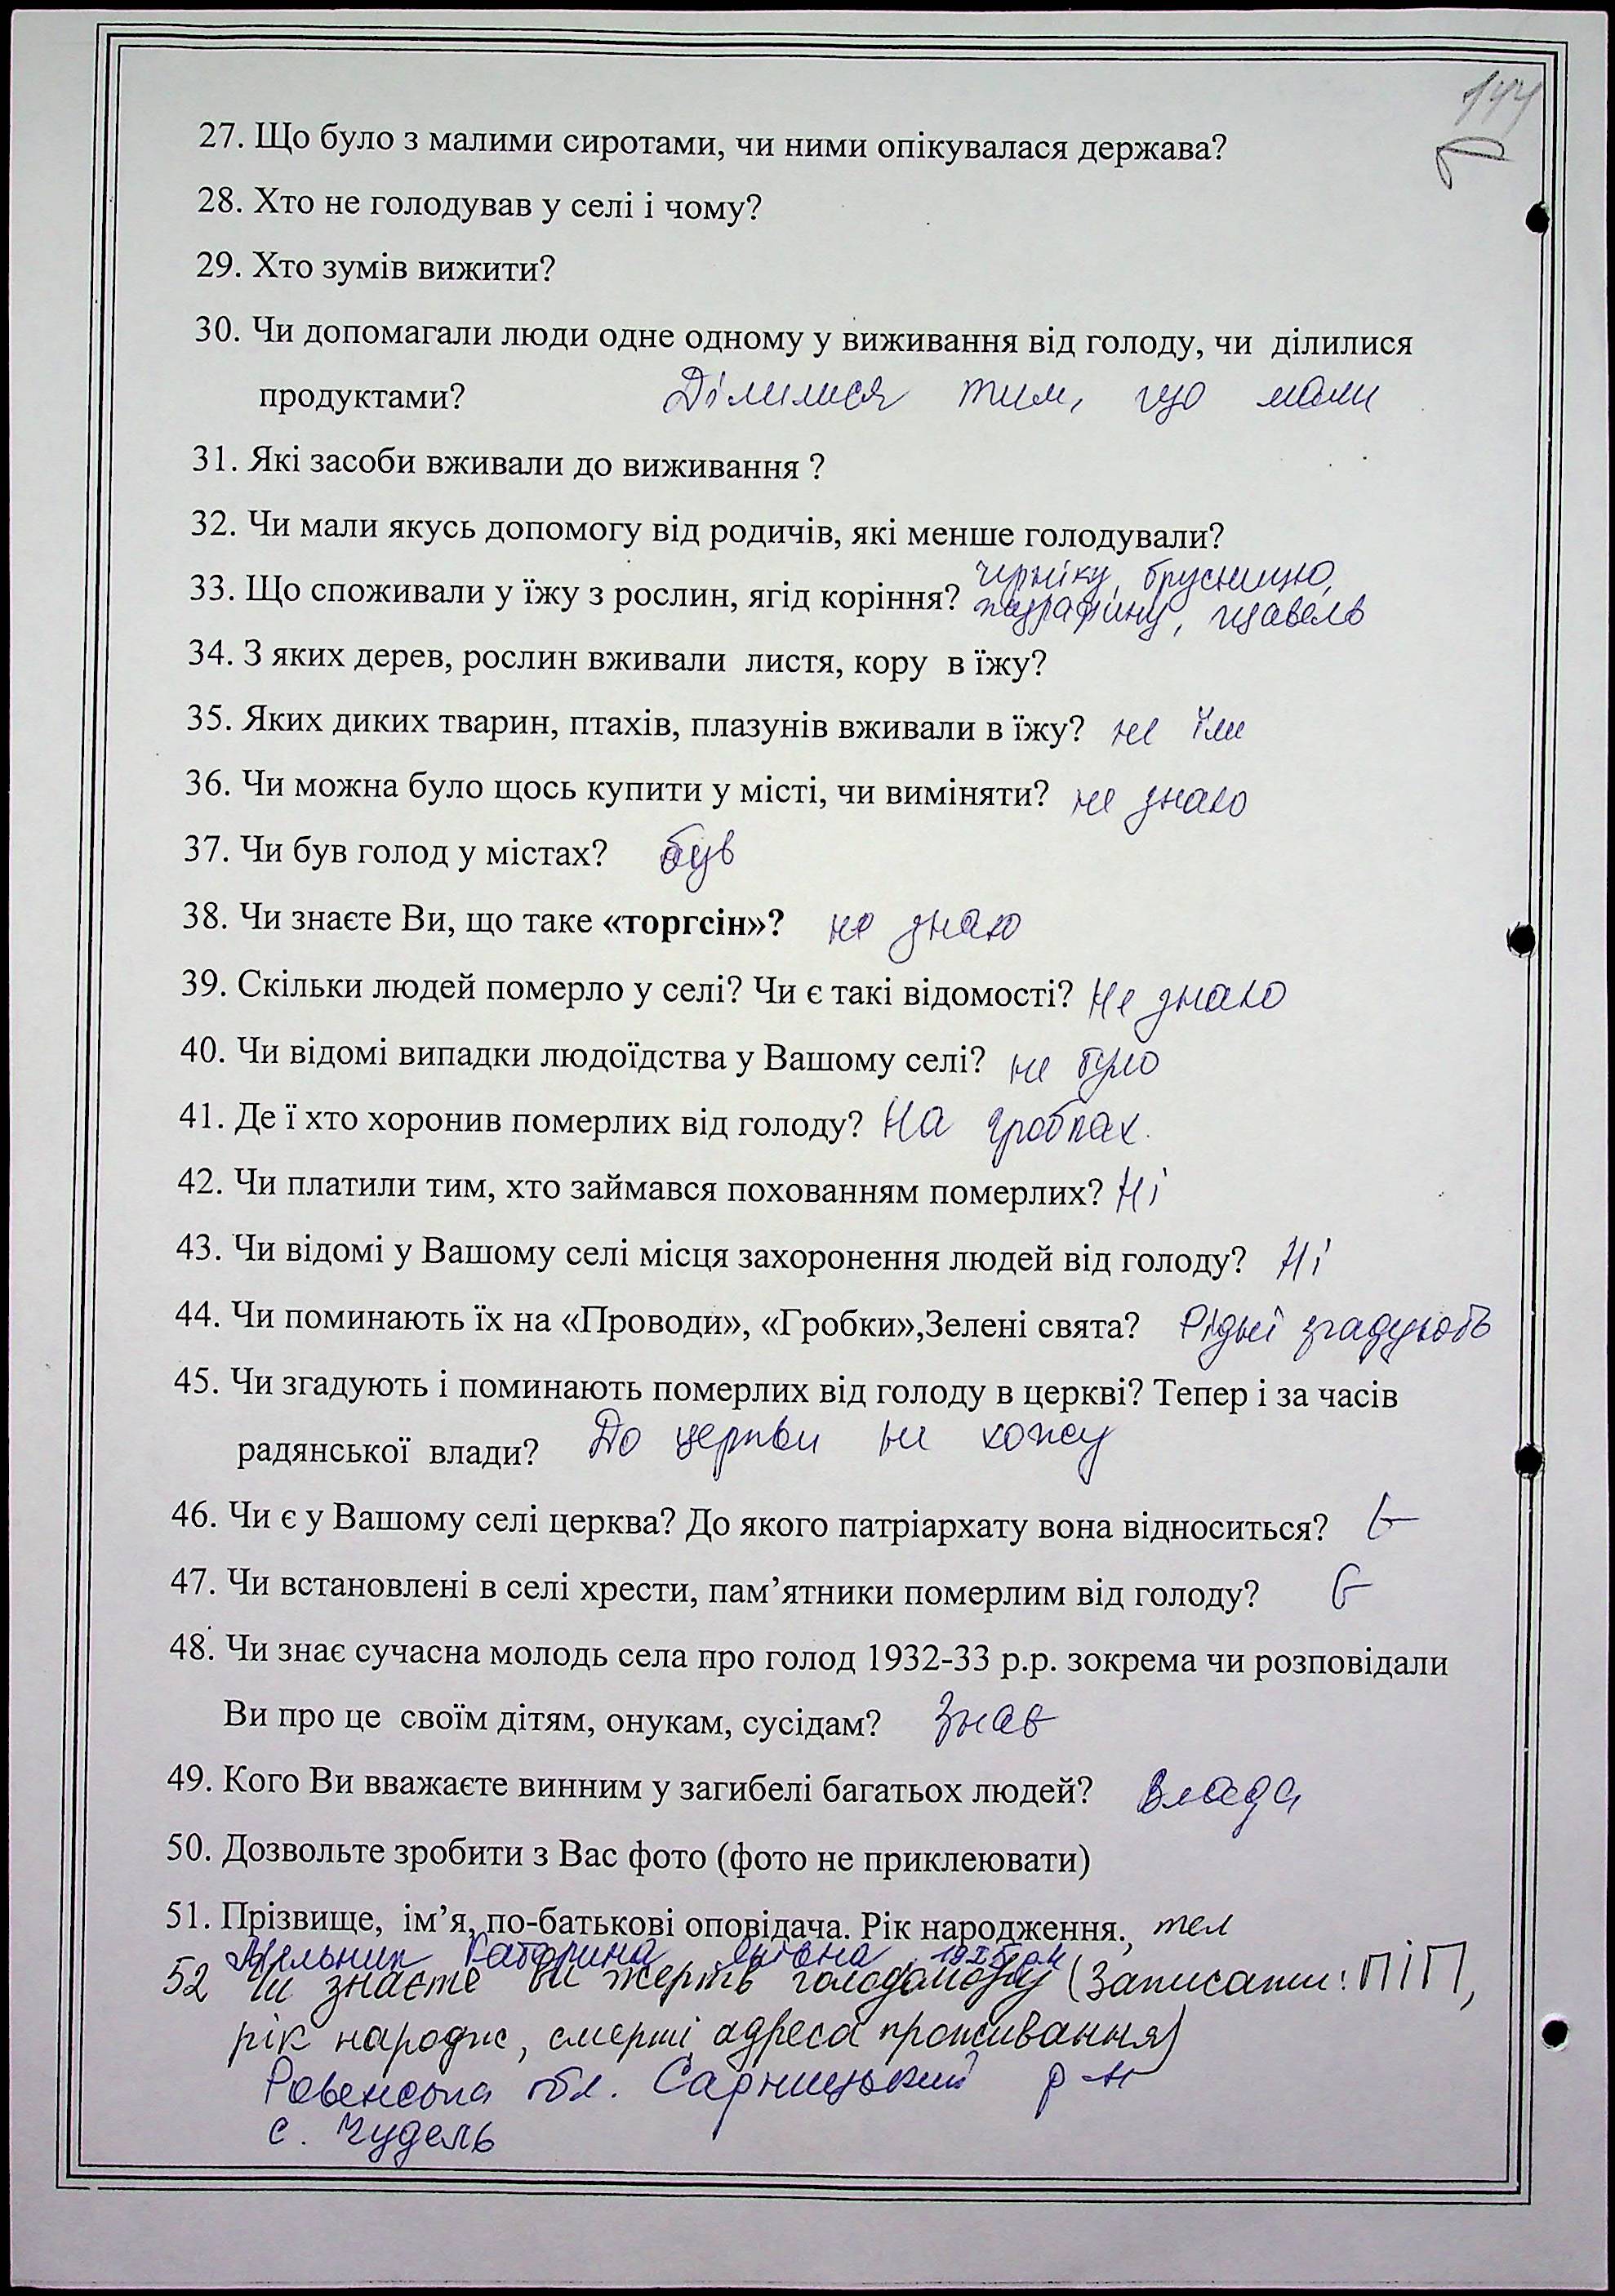 144
27. Що було з малими сиротами, чи ними опікувалася держава?
28. Хто не голодував у селі і чому?
29. Хто зумів вижити?
30. Чи допомагали люди одне одному у виживання від голоду, чи ділилися
продуктами? Ділилися тим, що мали
31. Які засоби вживали до виживання ?
32. Чи мали якусь допомогу від родичів, які менше голодували?
чорніку, брусницю,
33. Що споживали у їжу з рослин, ягід коріння? журафину, щавель
34. З яких дерев, рослин вживали листя, кору в їжу?
35. Яких диких тварин, птахів, плазунів вживали в їжу? не їли
36. Чи можна було щось купити у місті, чи виміняти? не знаю
37. Чи був голод у містах? був
38. Чи знаєте Ви, що таке «торгсін»? не знаю
39. Скільки людей померло у селі? Чи є такі відомості? Не знаю
40. Чи відомі випадки людоїдства у Вашому селі? не було
41. Де ї хто хоронив померлих від голоду? На гробках.
42. Чи платили тим, хто займався похованням померлих? Ні
43. Чи відомі у Вашому селі місця захоронення людей від голоду? Ні
44. Чи поминають їх на «Проводи», «Гробки»,Зелені свята? Рідні згадують
45. Чи згадують і поминають померлих від голоду в церкві? Тепер і за часів
радянської влади? До церкви не хожу
46. Чи є у Вашому селі церква? До якого патріархату вона відноситься? Є
47. Чи встановлені в селі хрести, пам’ятники померлим від голоду? Є
48. Чи знає сучасна молодь села про голод 1932-33 р.р. зокрема чи розповідали
Ви про це своїм дітям, онукам, сусідам? Знає
49. Кого Ви вважаєте винним у загибелі багатьох людей? Влада
50. Дозвольте зробити з Вас фото (фото не приклеювати)
51. Прізвище, ім’я, по-батькові оповідача. Рік народження., тел
Мельник Катерина
52 Чи знаєте Ви жертв голодомору (Записати: ПІП,
рік народж, смерті, адреса проживання)
Ровенська обл. Сарницький р-н
с. Чудель